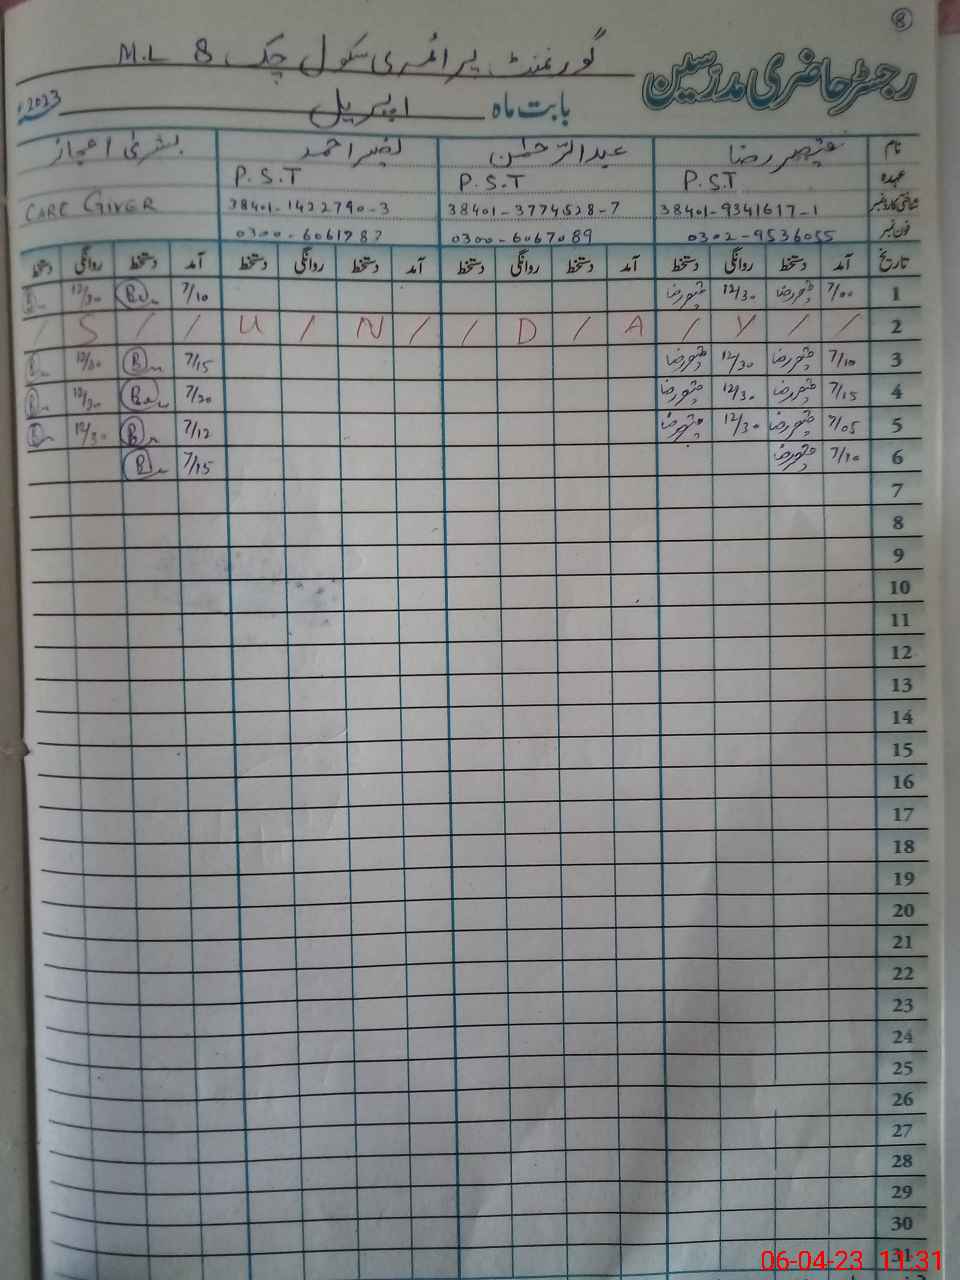 8
رجسٹر حاضری مدرسین گورنمنٹ پرائمری سکول چک 8 M.L
بابت ماہ اپریل 2023ء
نام رضا عبدالرحمٰن نصیر احمد بشریٰ اعجاز
عہدہ P.S.T P.S.T P.S.T CARE GIVER
شناختی کارڈ نمبر 38401-9341617-1 38401-3774528-7 38401-1422790-3
فون نمبر 0302-9536055 0300-6067089 0300-6061787
تاریخ آمد دستخط روانگی دستخط آمد دستخط روانگی دستخط آمد دستخط روانگی دستخط آمد دستخط روانگی دستخط
1 7/00 12/30 7/10 12/30
2 / S / / U / N / / D / A / Y / /
3 7/10 12/30 7/15 12/30
4 7/15 12/30 7/20 12/30
5 7/05 12/30 7/12 12/30
6 7/10 7/15
7
8
9
10
11
12
13
14
15
16
17
18
19
20
21
22
23
24
25
26
27
28
29
30
31
06-04-23 11:31